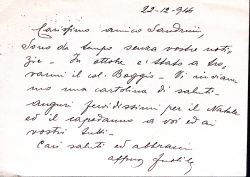 22-12-944
Carissimo amico Sandrini,
Sono da tempo senza vostre noti-
zie - In ottobre è stato a tro-
varmi il col. Boggio - Vi invia-
mo una cartolina di saluti -
auguri fervidissimi per il Natale
ed il capodanno a voi ed ai
vostri tutti -
Cari saluti ed abbracci